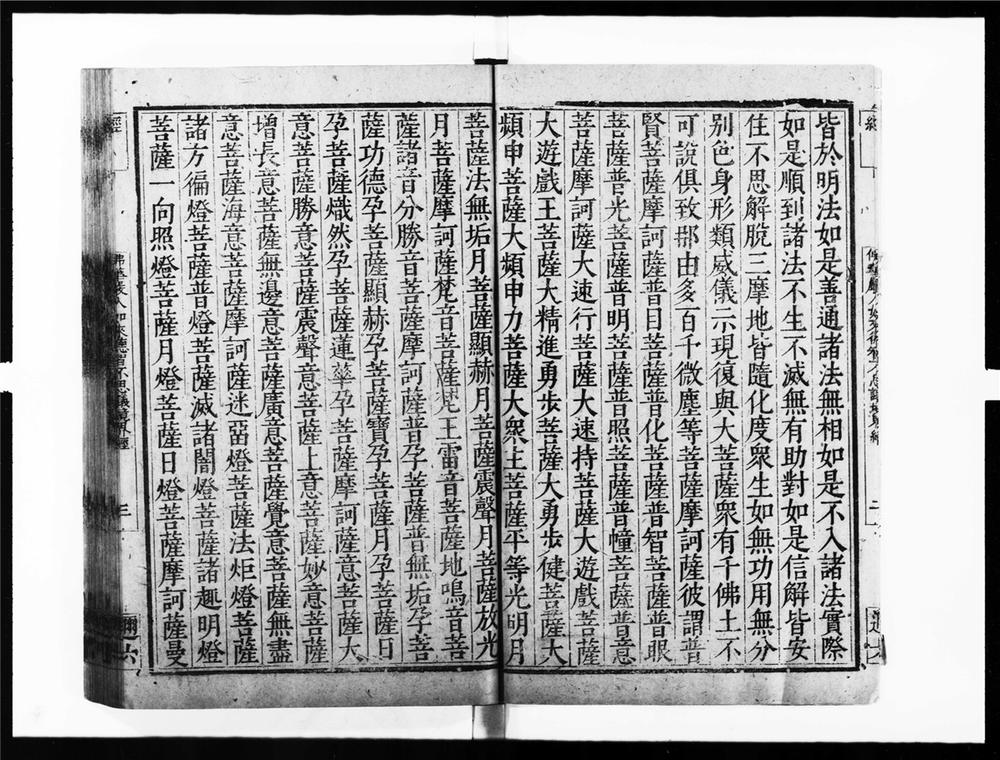 皆於明法如是善通諸法無相如是不入諸法實際
如是順到諸法不生不滅無有助對如是信解皆安
住不思解脫三摩地皆隨化度衆生如無功用無分
别色身形類威儀示現復與大菩薩衆有千佛土不
可說俱致那由多百千微塵等菩薩摩訶薩彼謂普
賢菩薩摩訶薩普目菩薩普化菩薩普智菩薩普眼
菩薩普光菩薩普明菩薩普照菩薩普幢菩薩普意
菩薩摩訶薩大速行菩薩大速持菩薩大遊戲菩薩
大遊戲王菩薩大精進勇步菩薩大勇步健菩薩大
頻申菩薩大頻申力菩薩大衆主菩薩平等光明月
菩薩法無垢月菩薩顯赫月菩薩震聲月菩薩放光
月菩薩摩訶薩梵音菩薩梵王雷音菩薩地鳴音菩
薩諸音分勝音菩薩摩訶薩普孕菩薩普無垢孕菩
薩功德孕菩薩顯赫孕菩薩寶孕菩薩月孕菩薩日
孕菩薩熾然孕菩薩蓮華孕菩薩摩訶薩意菩薩大
意菩薩勝意菩薩震聲意菩薩上意菩薩妙意菩薩
增長意菩薩無邊意菩薩廣意菩薩覺意菩薩無盡
意菩薩海意菩薩摩訶薩迷畱燈菩薩法炬燈菩薩
諸方徧燈菩薩普燈菩薩滅諸闇燈菩薩諸趣明燈
菩薩一向照燈菩薩月燈菩薩日燈菩薩摩訶薩曼
經
三
爾六